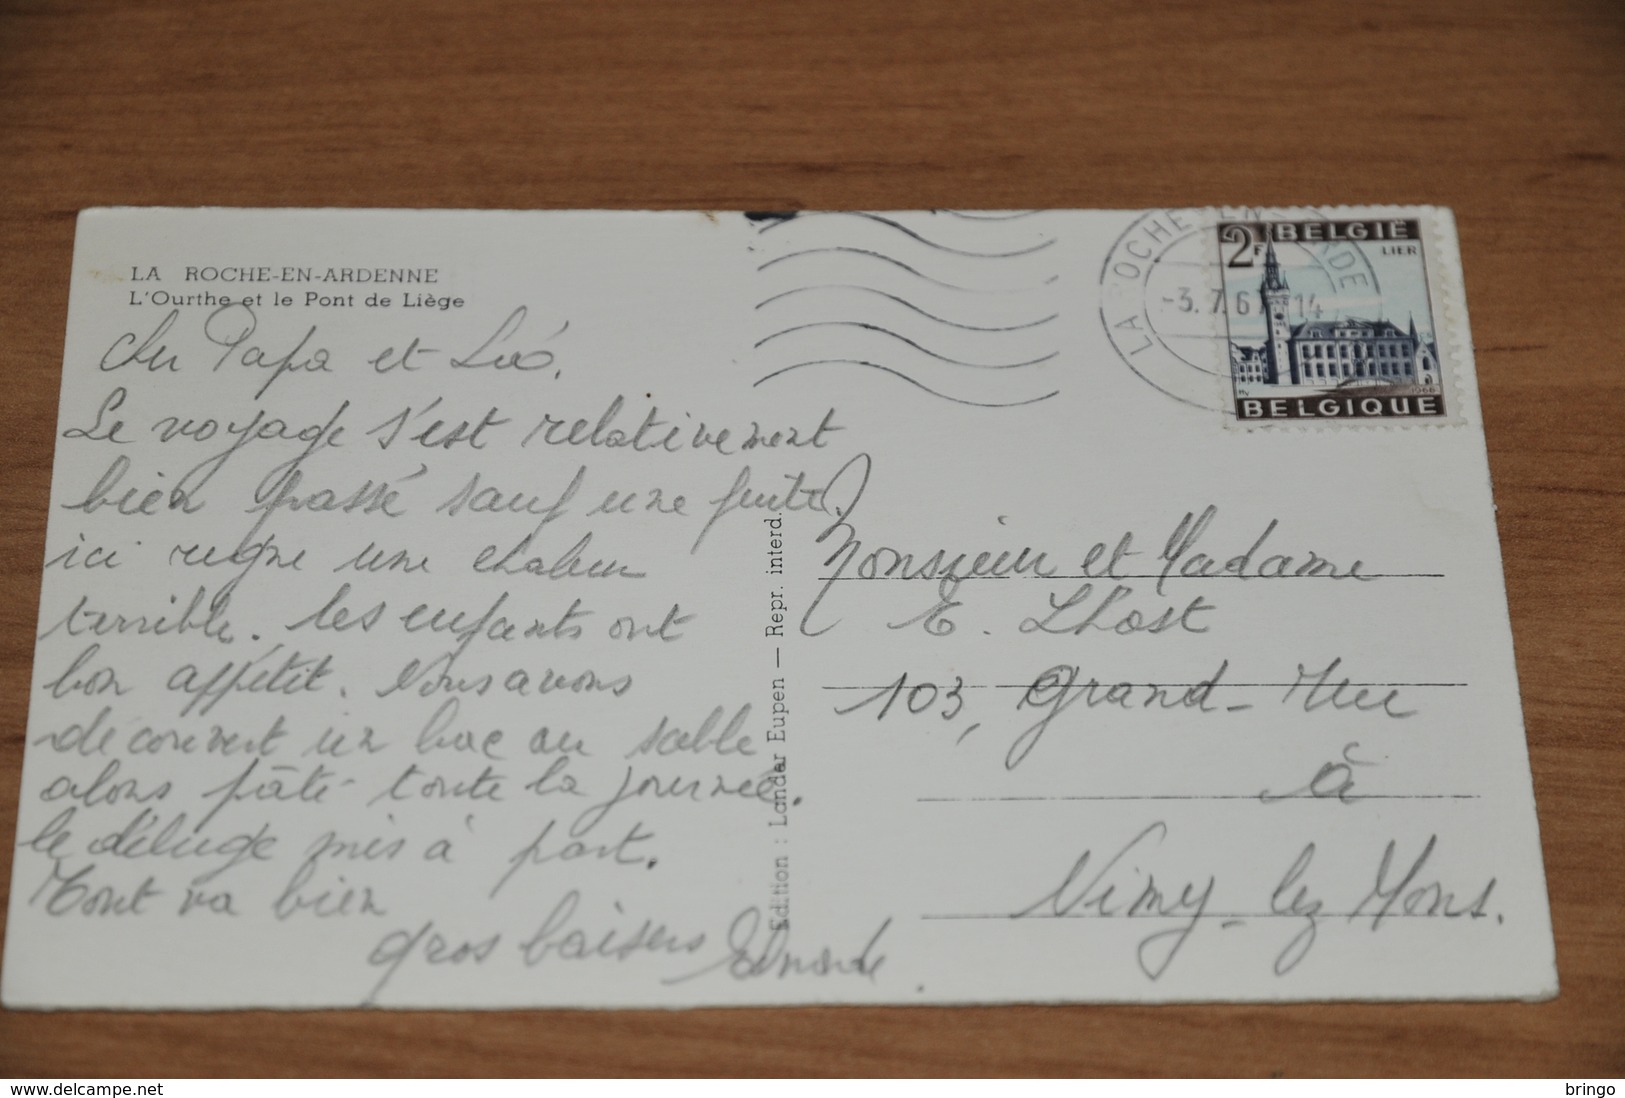 LA ROCHE-EN-ARDENNE
L'Ourthe et le Pont de Liège
Papa et Léo,
Le voyage s'est relativement
bien passé sauf une fuite.
ici règne une chaleur
terrible. les enfants ont
bon appétit. Nous avons
découvert un bac au sable
alors pâté toute la journée.
le déluge mis à part.
Tout va bien
gros baisers
Edition : Lander Eupen — Repr. interd.
LA ROCHE-EN-ARDENNE
-3.7.6 14
2F BELGIË
LIER
1966
BELGIQUE
Monsieur et Madame
E. Lhost
103, Grand-Rue
à
Nimy-lez Mons.
delcampe.net
bringo